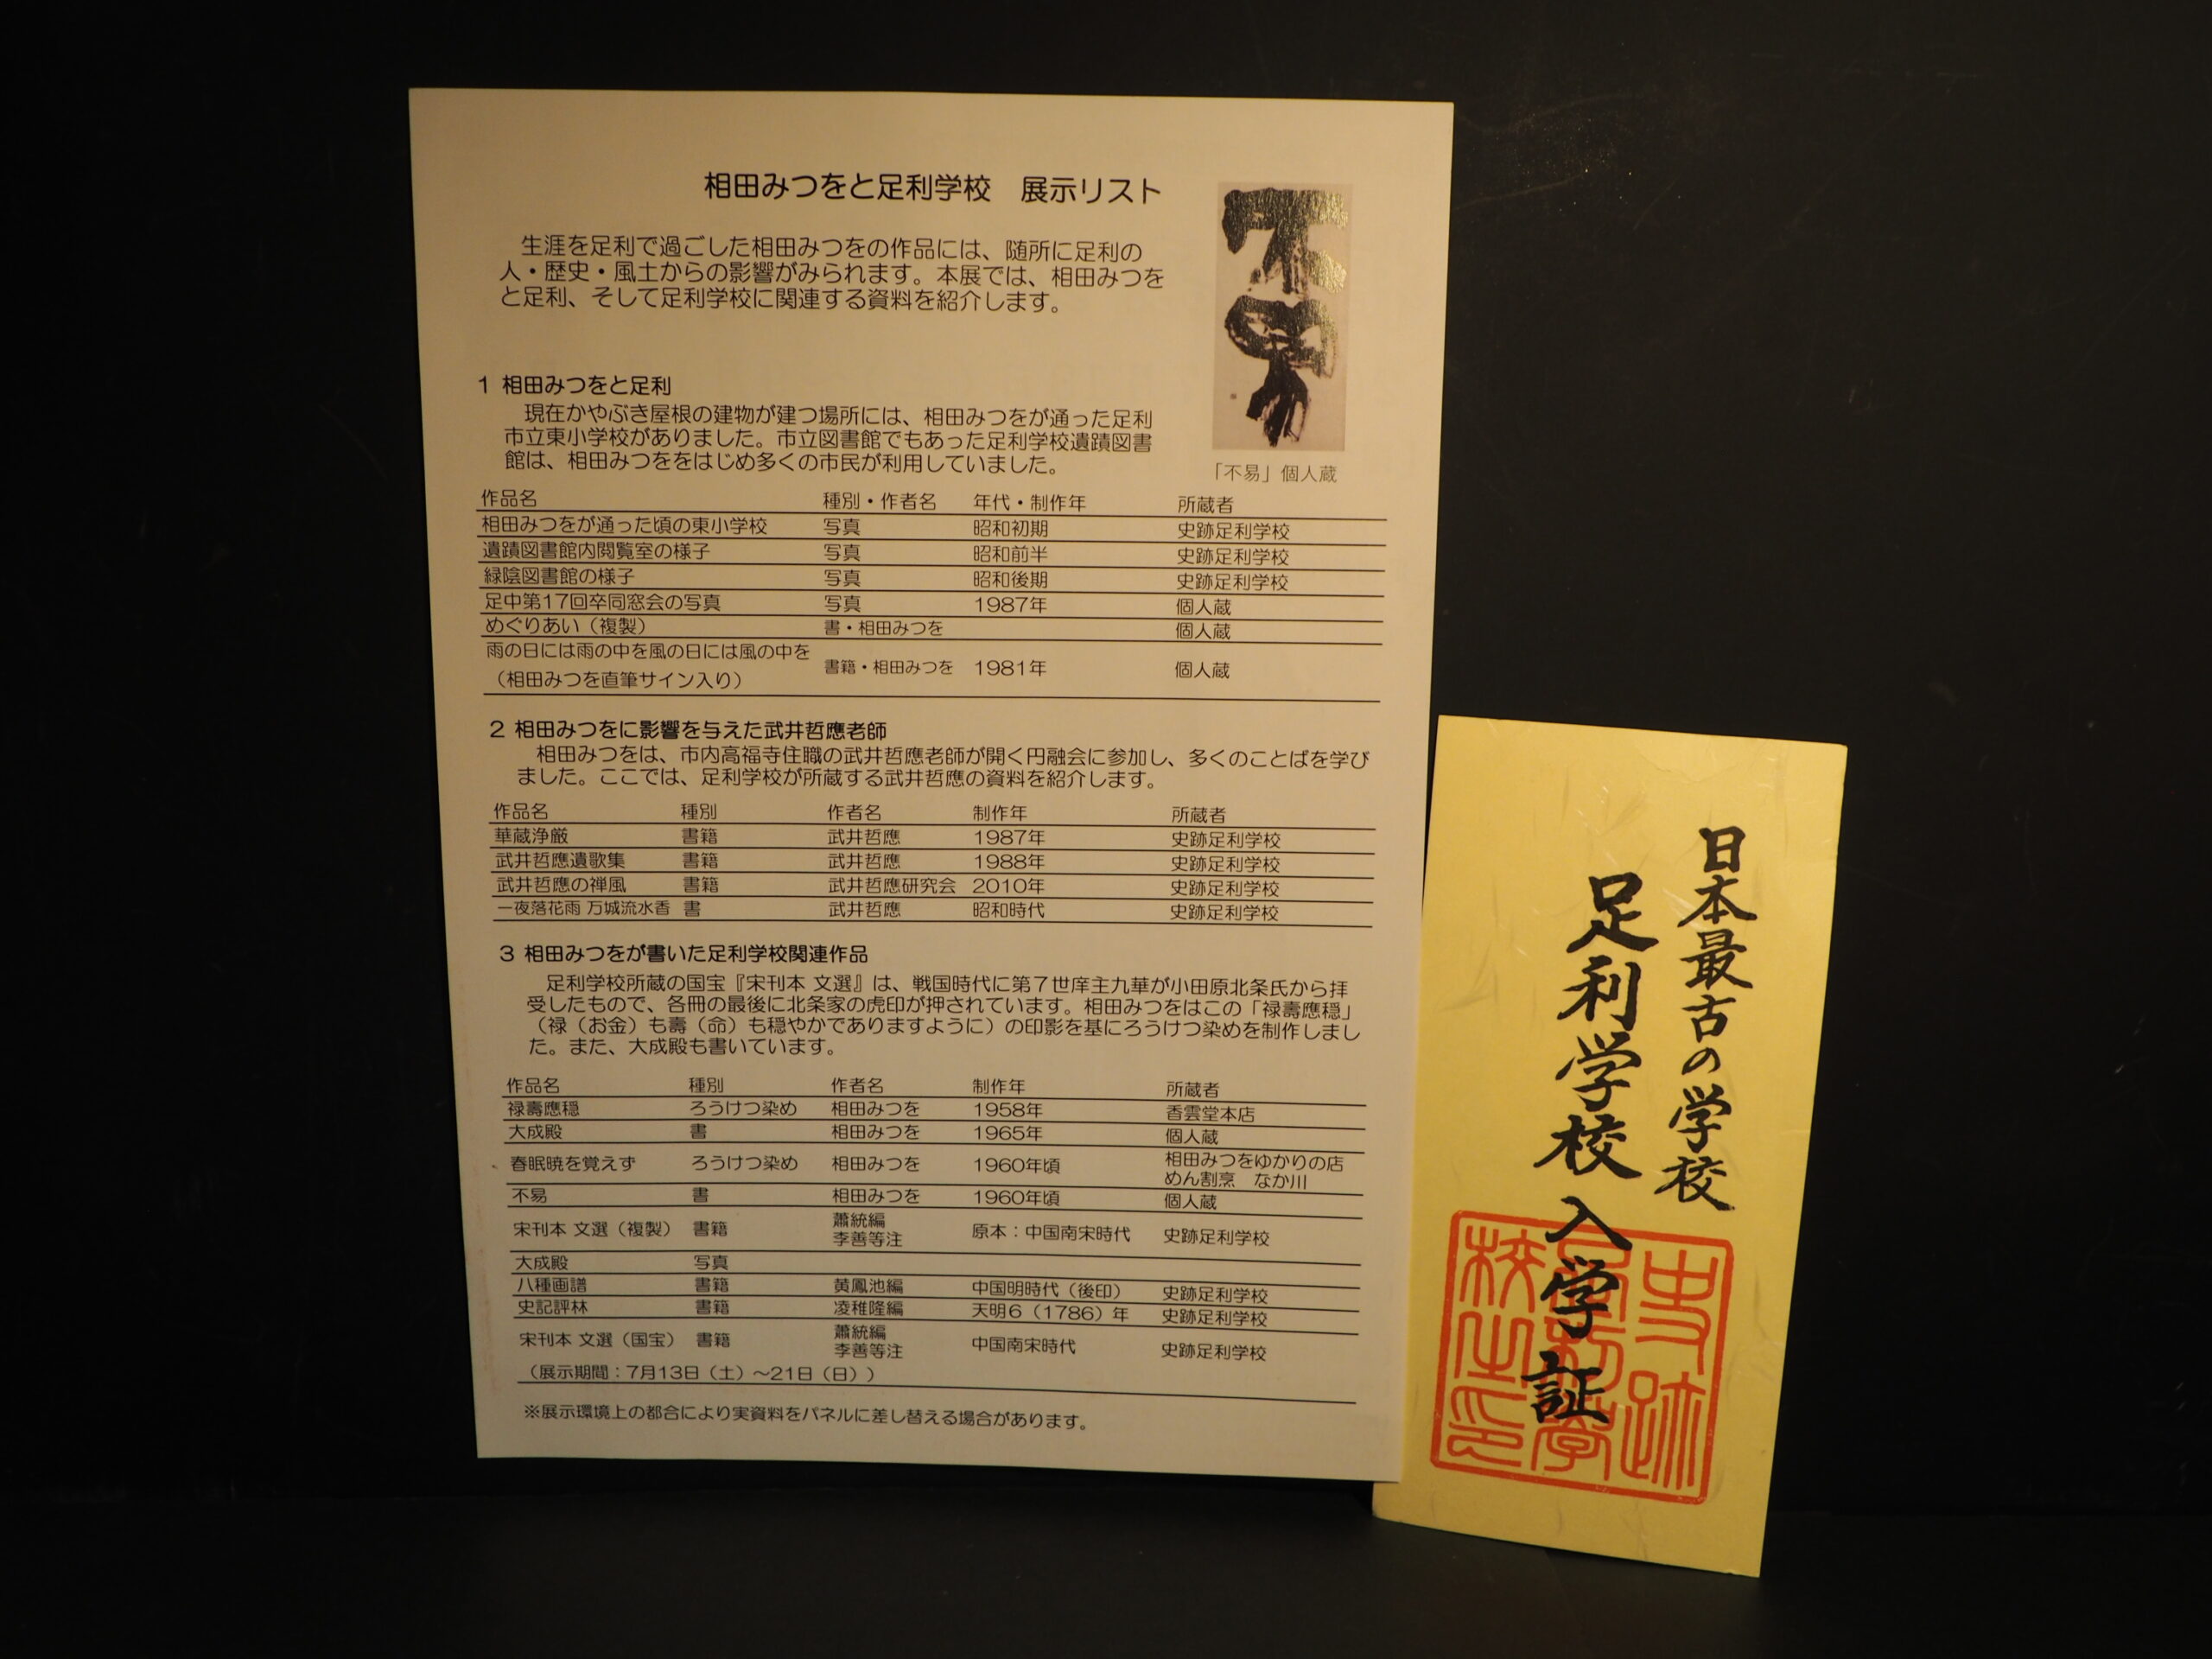 相田みつをと足利学校　展示リスト
生涯を足利で過ごした相田みつをの作品には、随所に足利の
人・歴史・風土からの影響がみられます。本展では、相田みつを
と足利、そして足利学校に関連する資料を紹介します。
不易
「不易」個人蔵
1 相田みつをと足利
現在かやぶき屋根の建物が建つ場所には、相田みつをが通った足利
市立東小学校がありました。市立図書館でもあった足利学校遺蹟図書
館は、相田みつををはじめ多くの市民が利用していました。
作品名 種別・作者名 年代・制作年 所蔵者
相田みつをが通った頃の東小学校 写真 昭和初期 史跡足利学校
遺蹟図書館内閲覧室の様子 写真 昭和前半 史跡足利学校
緑陰図書館の様子 写真 昭和後期 史跡足利学校
足中第17回卒同窓会の写真 写真 1987年 個人蔵
めぐりあい（複製） 書・相田みつを 個人蔵
雨の日には雨の中を風の日には風の中を
（相田みつを直筆サイン入り） 書籍・相田みつを 1981年 個人蔵
2 相田みつをに影響を与えた武井哲應老師
相田みつをは、市内高福寺住職の武井哲應老師が開く円融会に参加し、多くのことばを学び
ました。ここでは、足利学校が所蔵する武井哲應の資料を紹介します。
作品名 種別 作者名 制作年 所蔵者
華蔵浄厳 書籍 武井哲應 1987年 史跡足利学校
武井哲應遺歌集 書籍 武井哲應 1988年 史跡足利学校
武井哲應の禅風 書籍 武井哲應研究会 2010年 史跡足利学校
一夜落花雨 万城流水香 書 武井哲應 昭和時代 史跡足利学校
3 相田みつをが書いた足利学校関連作品
足利学校所蔵の国宝『宋刊本 文選』は、戦国時代に第７世庠主九華が小田原北条氏から拝
受したもので、各冊の最後に北条家の虎印が押されています。相田みつをはこの「禄壽應穏」
（禄（お金）も壽（命）も穏やかでありますように）の印影を基にろうけつ染めを制作しまし
た。また、大成殿も書いています。
作品名 種別 作者名 制作年 所蔵者
禄壽應穏 ろうけつ染め 相田みつを 1958年 香雲堂本店
大成殿 書 相田みつを 1965年 個人蔵
春眠暁を覚えず ろうけつ染め 相田みつを 1960年頃 相田みつをゆかりの店
めん割烹　なか川
不易 書 相田みつを 1960年頃 個人蔵
宋刊本 文選（複製） 書籍 蕭統編
李善等注 原本：中国南宋時代 史跡足利学校
大成殿 写真
八種画譜 書籍 黄鳳池編 中国明時代（後印） 史跡足利学校
史記評林 書籍 凌稚隆編 天明６（1786）年 史跡足利学校
宋刊本 文選（国宝） 書籍 蕭統編
李善等注 中国南宋時代 史跡足利学校
（展示期間：7月13日（土）～21日（日））
※展示環境上の都合により実資料をパネルに差し替える場合があります。
日本最古の学校
足利学校 入学証
史跡
足利学
校之印